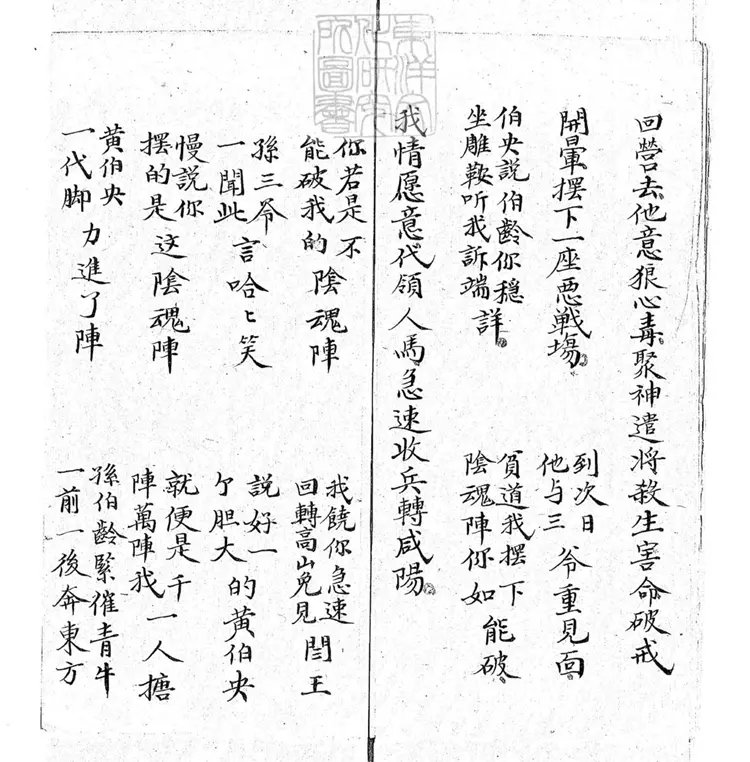 東洋文
化研究
所圖書
回營去他意狼心毒聚神遣將殺生害命破戒
開暈擺下一座惡戰場
到次日他与三爷重見面
伯央說伯齡你穩坐雕鞍听我訴端詳
貧道我擺下陰魂陣你如能破
我情愿意代領人馬急速收兵轉咸陽
你若是不能破我的陰魂陣
我饒你急速回轉高山免見閆王
孫三爷一聞此言哈匕笑
說好一个胆大的黃伯央
慢說你擺的是这陰魂陣
就便是千陣萬陣我一人搪
黃伯央一代脚力進了陣
孫伯齡緊催青牛一前一後奔東方